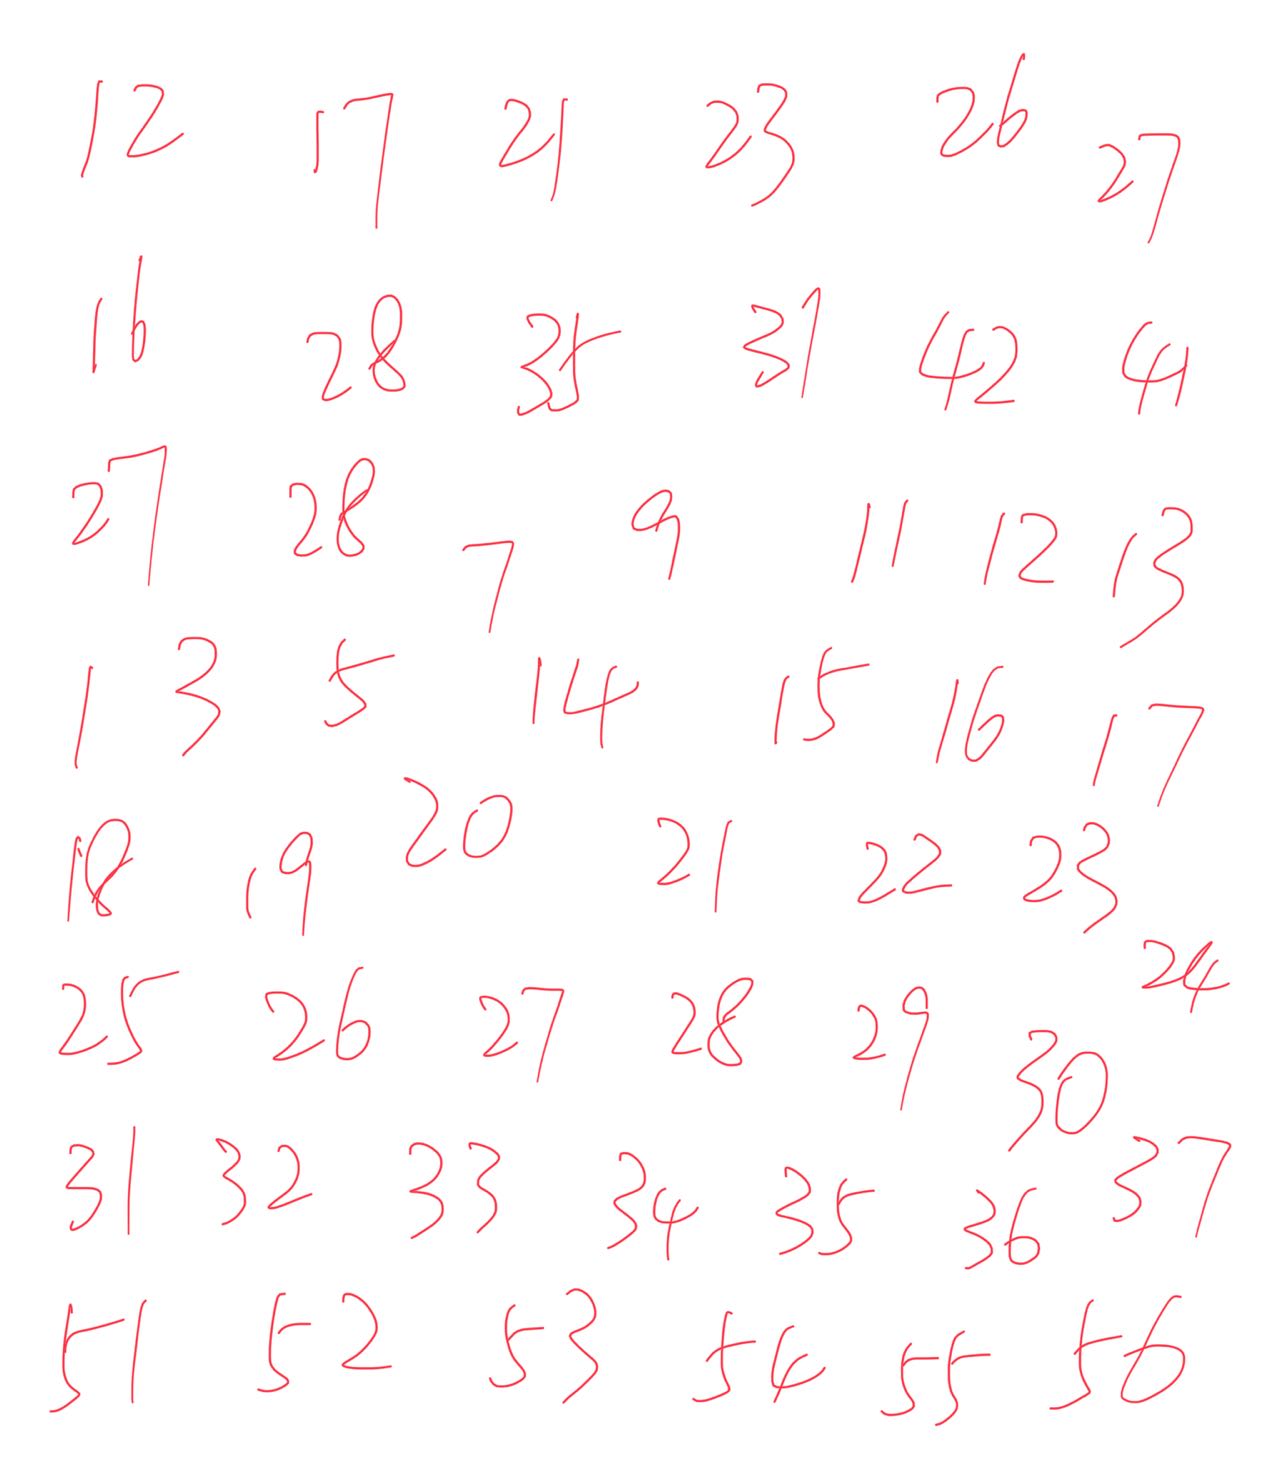 12 17 21 23 26 27
16 28 35 31 42 41
27 28 7 9 11 12 13
1 3 5 14 15 16 17
18 19 20 21 22 23 24
25 26 27 28 29 30
31 32 33 34 35 36 37
51 52 53 54 55 56